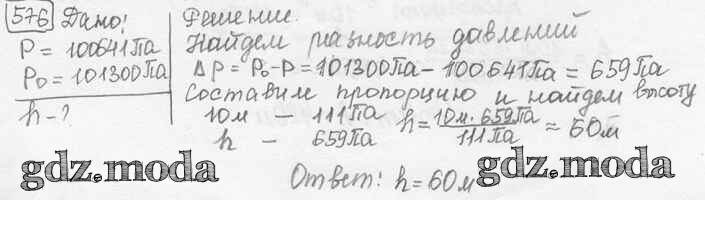 576 Дано:
P = 100641 Па
P₀ = 101300 Па
h - ?
Решение.
Найдем разность давлений
ΔP = P₀ - P = 101300 Па - 100641 Па = 659 Па
Составим пропорцию и найдем высоту
10м - 111 Па
h - 659 Па
h = 10м · 659 Па / 111 Па ≈ 60м
Ответ: h = 60м
gdz.moda
gdz.moda